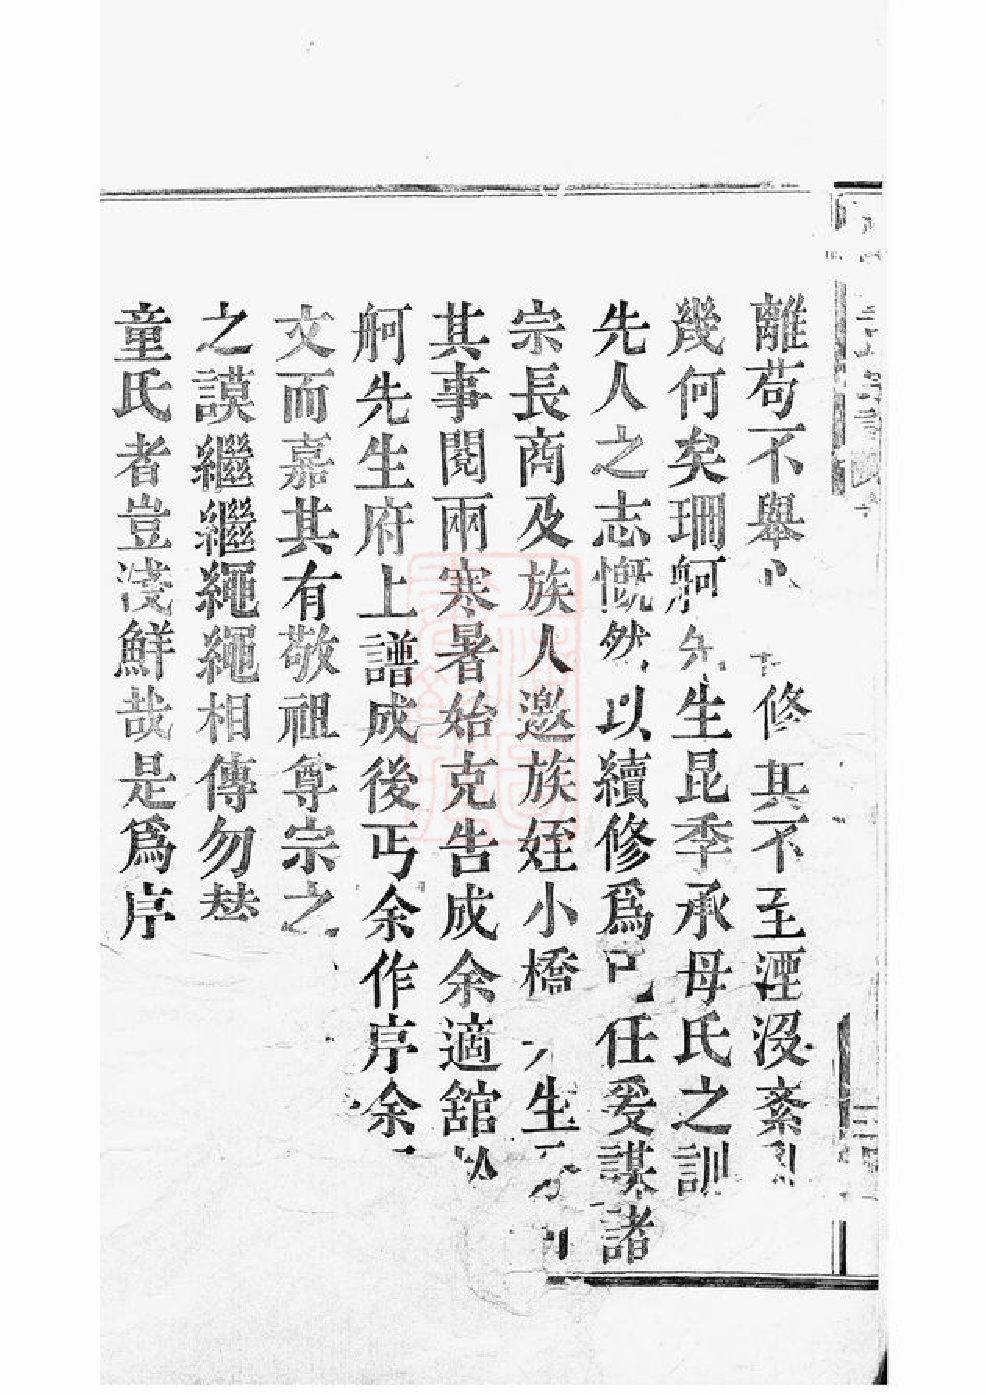 離苟不舉修其不至湮沒紊
幾何矣珊舸先生昆季承母氏之訓
先人之志慨然以續修爲己任爰謀諸
宗長商及族人邀族姪小橋生
其事閱兩寒暑始克告成余適舘
舸先生府上譜成後丐余作序余
文而嘉其有敬祖尊宗之
之謨繼繼繩繩相傳勿替
童氏者豈淺鮮哉是爲序
三